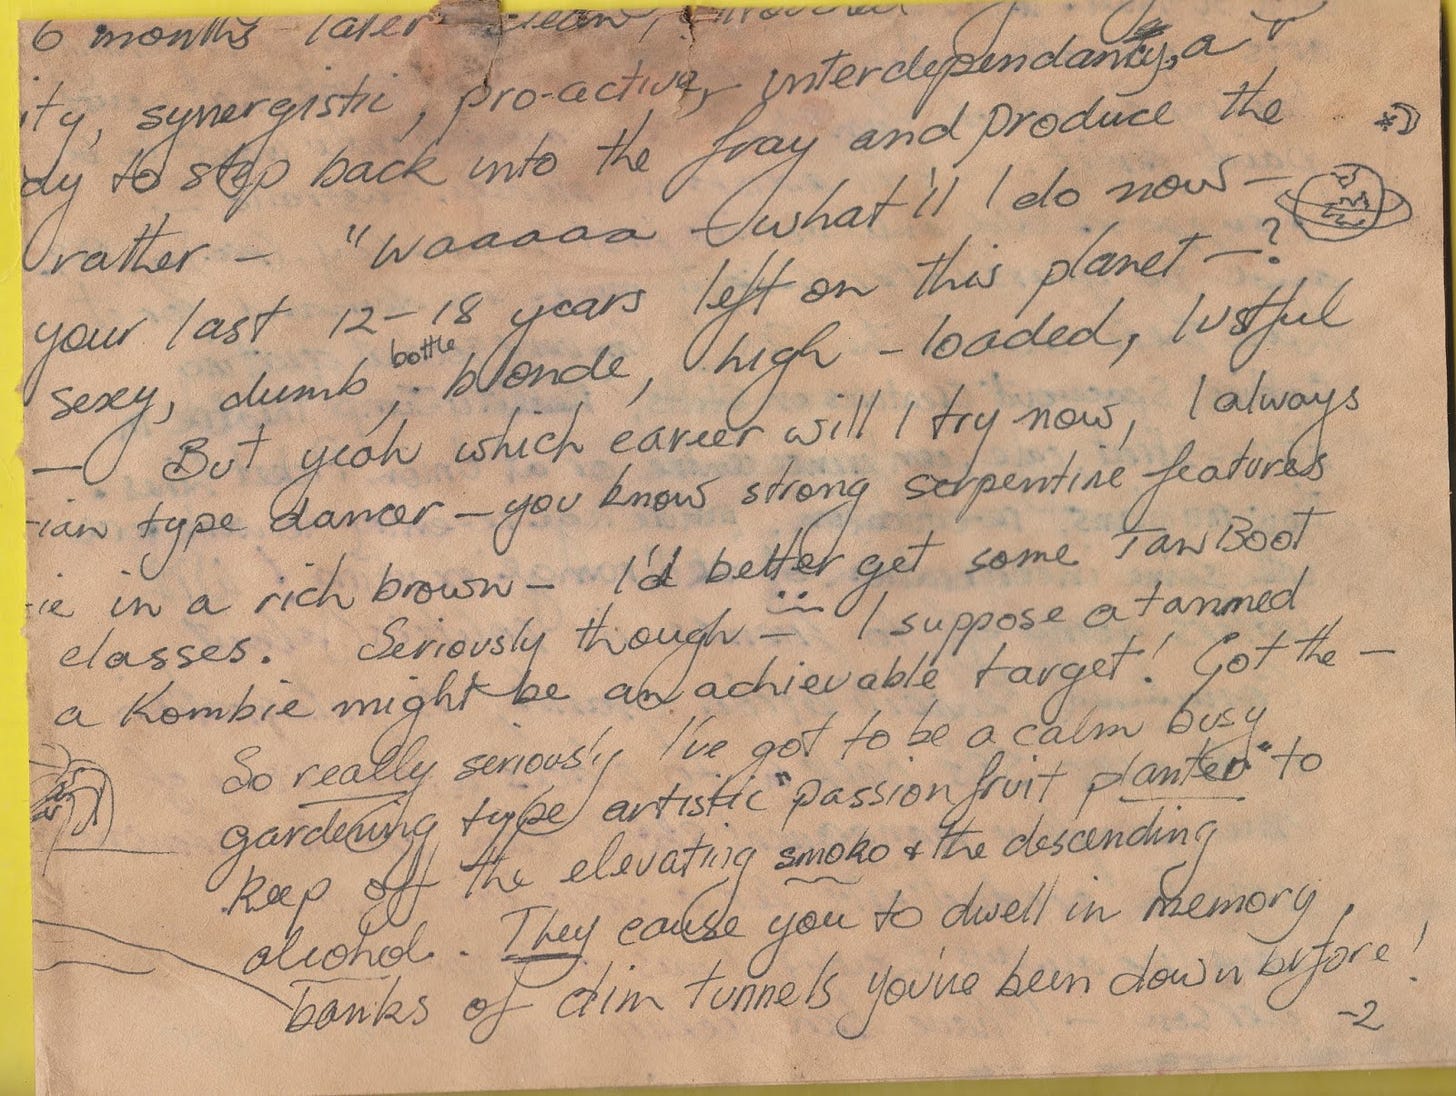 6 months later clean,
ity, synergistic, pro-active, interdependancy, a
dy to step back into the fray and produce the
rather – "waaaaa – what'll I do now –
your last 12–18 years left on this planet – ?
sexy, dumb, bottle blonde, high-loaded, lustful
— But yeah which career will I try now, I always
ian type dancer – you know strong serpentine features
ie in a rich brown – I'd better get some Tan Boot
classes. Seriously though – I suppose a tanned
a Kombie might be an achievable target! Got the –
So really seriously I've got to be a calm busy
gardening type artistic "passionfruit planter" to
keep off the elevating smoko & the descending
alcohol. They cause you to dwell in memory,
banks of dim tunnels you've been down before!
-2